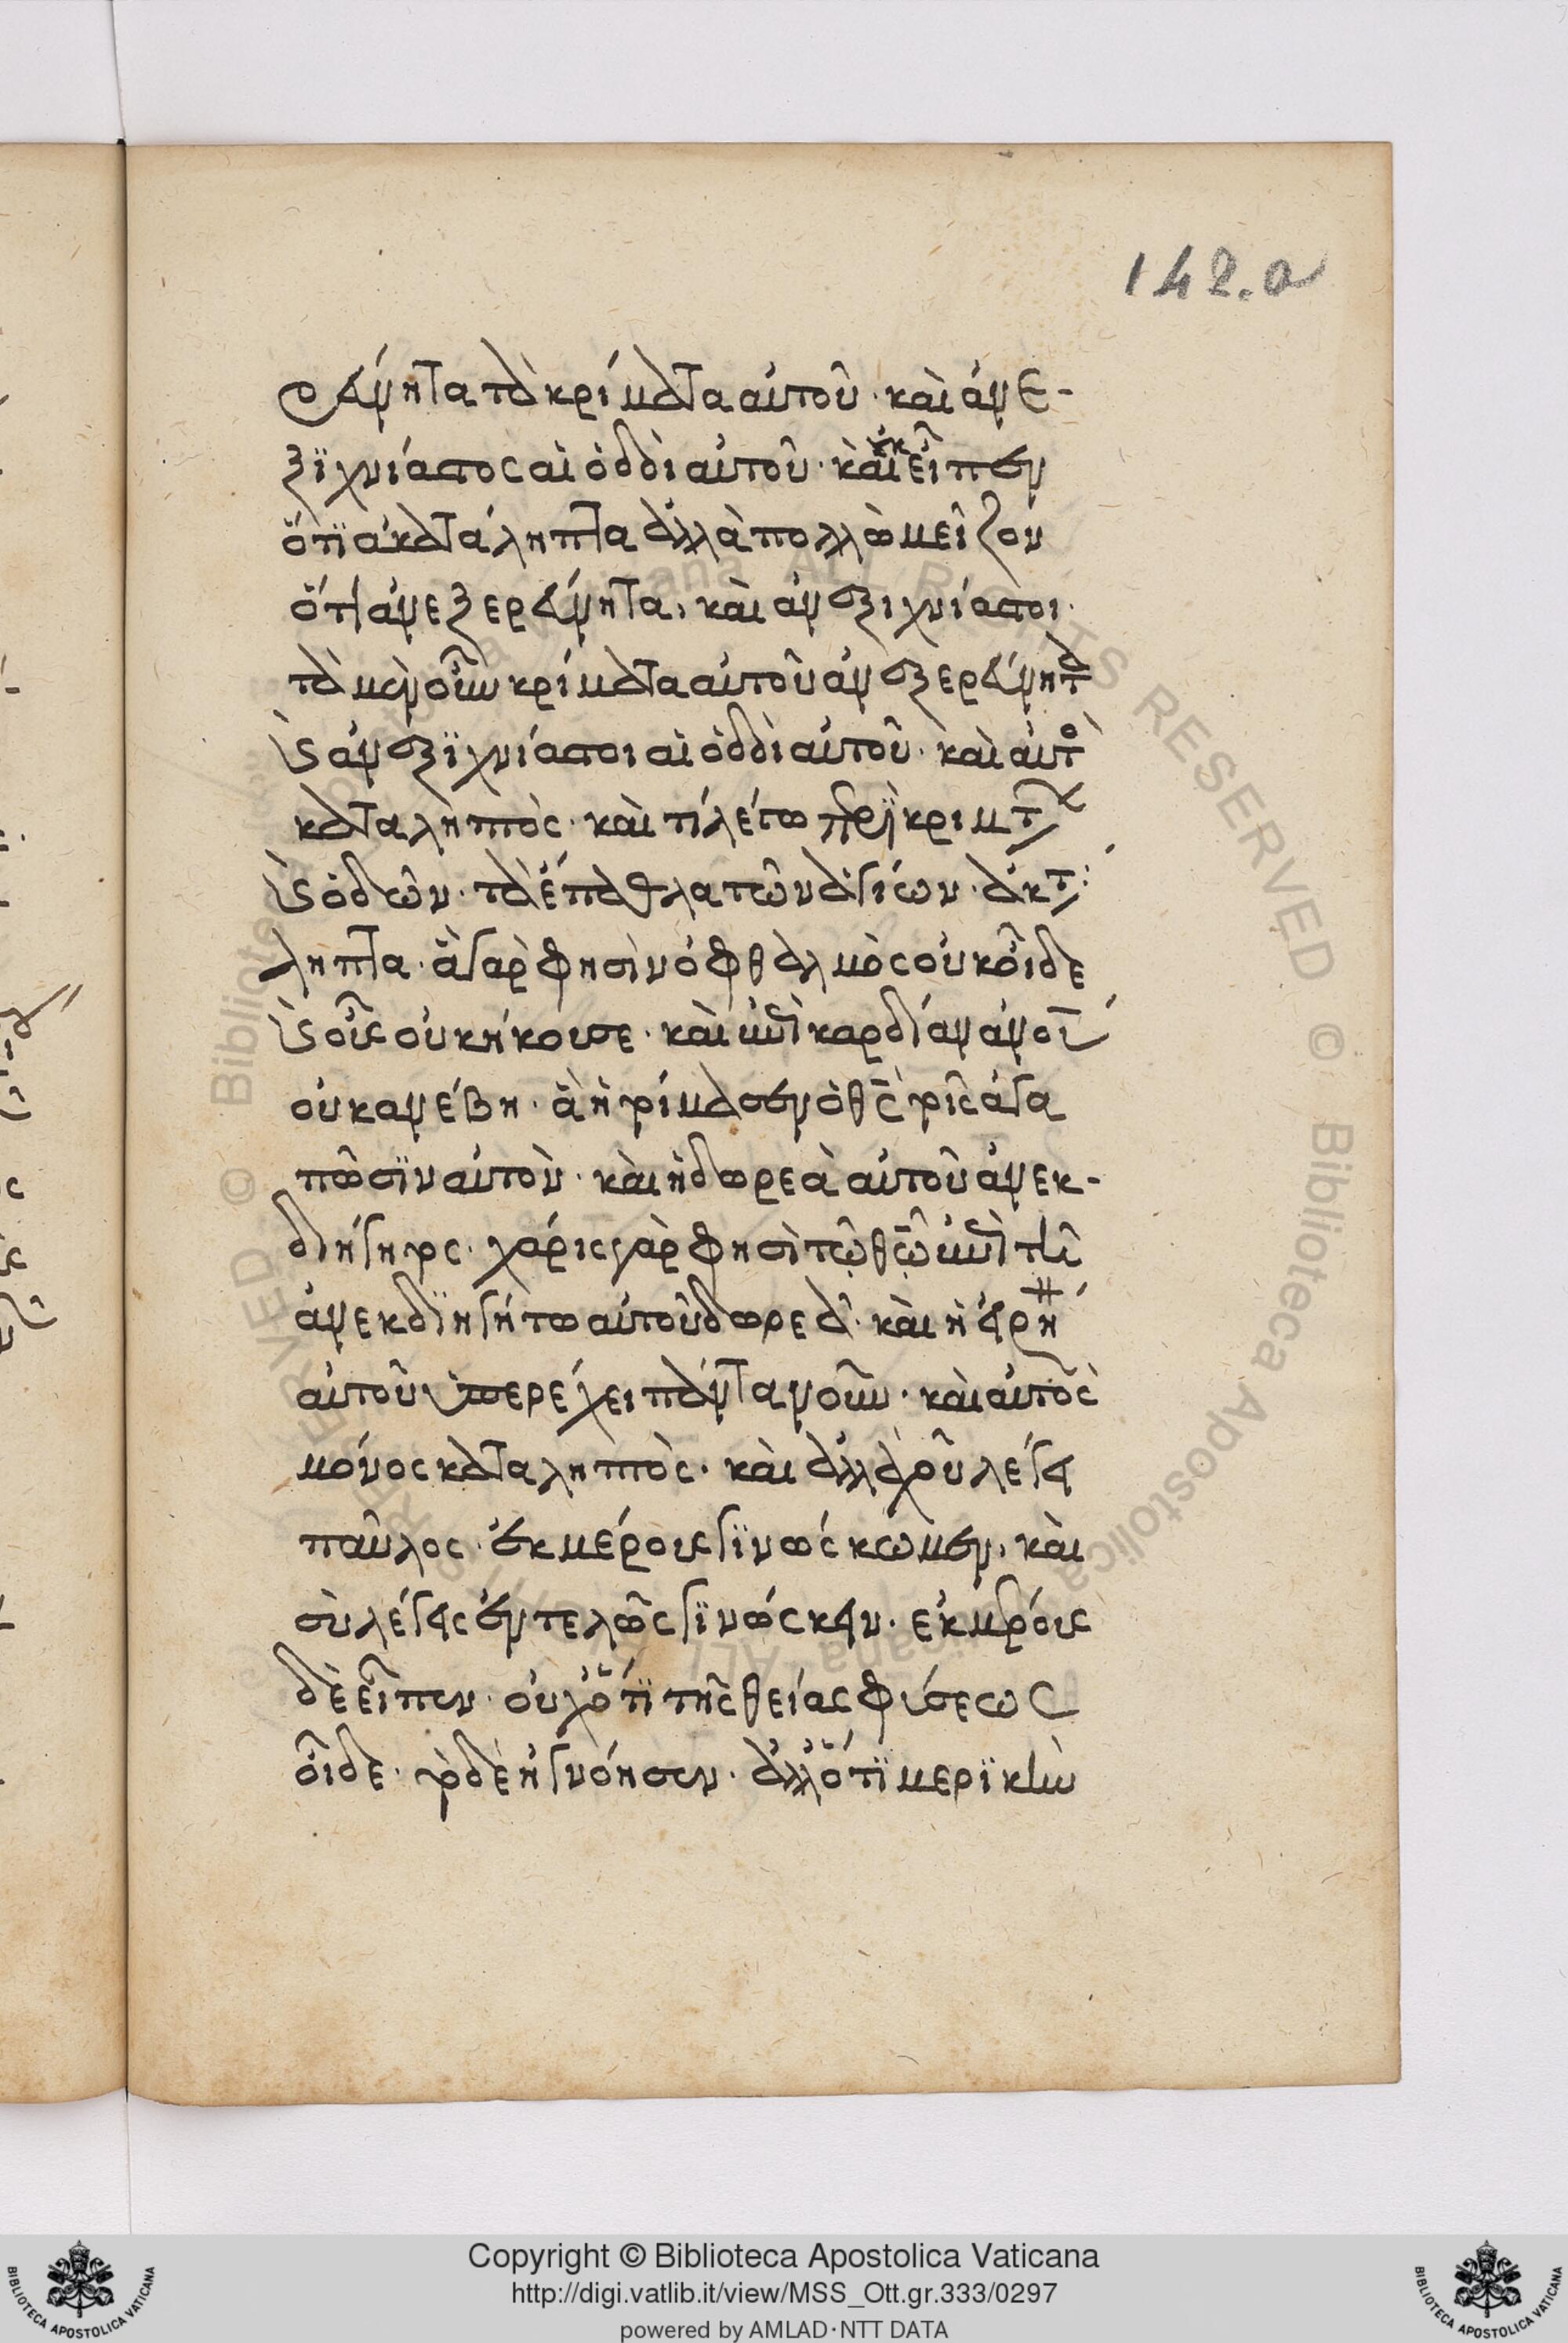 142.a
ρεύνητα τὰ κρίματα αὐτοῦ · καὶ ἀνε-
ξϊχνίαστος αἱ ὁδοὶ αὐτοῦ · καὶ οὐκ εἶπεν
ὅτϊ ἀκατάληπτα ἀλλὰ πολλῶ μεῖζον
ὅτι ἀνεξερεύνητα, καὶ ἀνεξιχνίαστοι ·
τὰ μὲν οὖν κρίματα αὐτοῦ ἀνεξερεύνητα
καὶ ἀνεξϊχνίαστοι αἱ ὁδοὶ αὐτοῦ · καὶ αὐτὸς
καταληπτὸς · καὶ τί λέγω περὶ κριμάτων
καὶ ὁδῶν · τὰ ἔπαθλα τῶν ἁγίων · ἀκατά
ληπτα · ἃ γαρ φησὶν ὀφθαλμὸς οὐκ οἶδε
καὶ οὖς οὐκ ἤκουσε · καὶ ἐπὶ καρδίαν ἀνου
οὐκ ἀνέβη · ἃ ἡτοίμασεν ὁ θς τοῖς ἀγα
πῶσϊν αὐτὸν · καὶ ἡ δωρεὰ αὐτοῦ ἀνεκ-
διήγητος · χάρις γὰρ φησὶ τῶ θῶ ἐπὶ τῆ
ἀνεκδϊηγήτω αὐτοῦ δωρεᾶ · καὶ ἡ εἰρήνη
αὐτοῦ ὑπερέχει πάντα νοῦν · καὶ αὐτὸς
μόνος καταληπτὸς · καὶ ἀλλαχοῦ λέγει
παῦλος · ἐκ μέρους γϊνώσκωμεν, καὶ
σὺ λέγεις ἐντελῶς γϊνώσκειν · ἐκ μέρους
δὲ εἶπεν · οὐχ ὅτϊ τῆς θείας φύσεως
οἶδε · τὸ δὲ ἠγνόησεν · ἀλλ' ὅτϊ μερϊκὴν
Copyright © Biblioteca Apostolica Vaticana
http://digi.vatlib.it/view/MSS_Ott.gr.333/0297
powered by AMLAD·NTT DATA